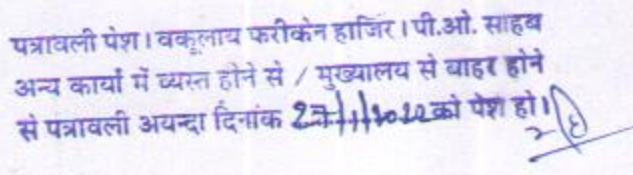 पत्रावली पेश। वकूलाय फरीकेन हाजिर। पी.ओ. साहब
अन्य कार्यो में व्यस्त होने से / मुख्यालय से बाहर होने
से पत्रावली अयन्दा दिनांक 27/1/2022 को पेश हो।